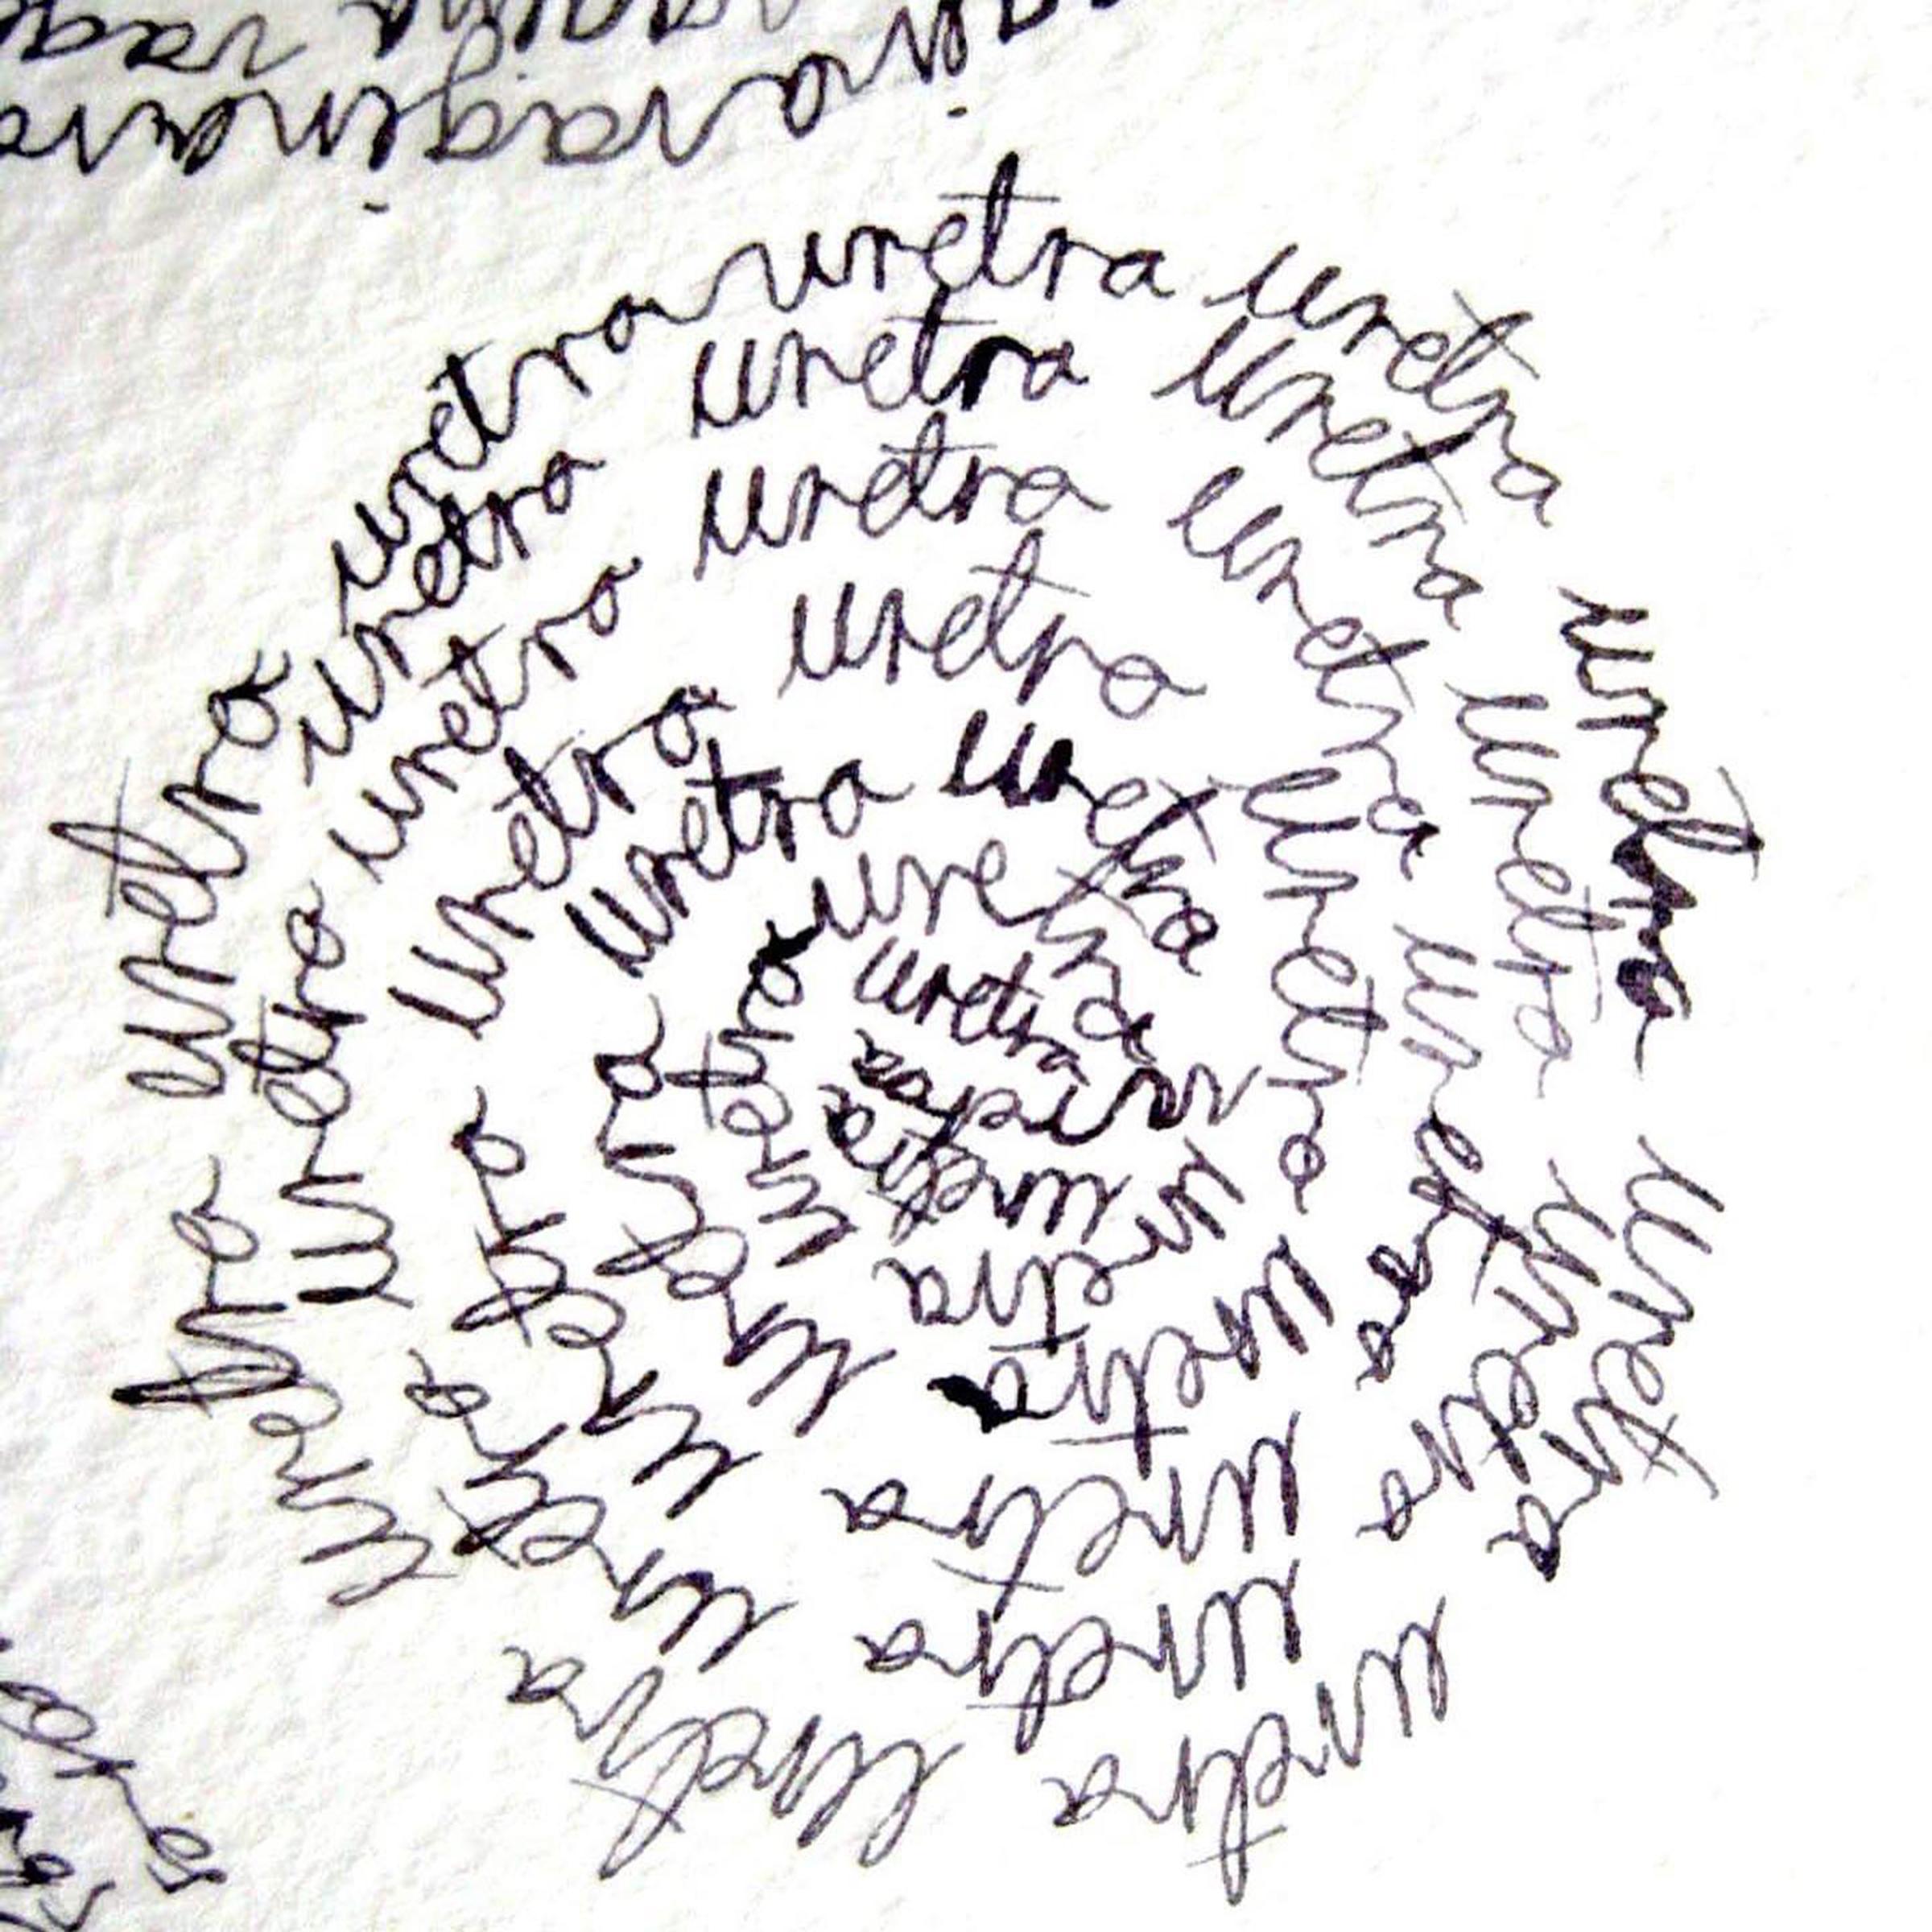 vagina
uretra uretra uretra uretra uretra uretra uretra uretra uretra
uretra uretra uretra uretra uretra uretra uretra uretra
uretra uretra uretra uretra uretra uretra
uretra uretra uretra uretra uretra
uretra uretra uretra uretra
uretra uretra uretra uretra